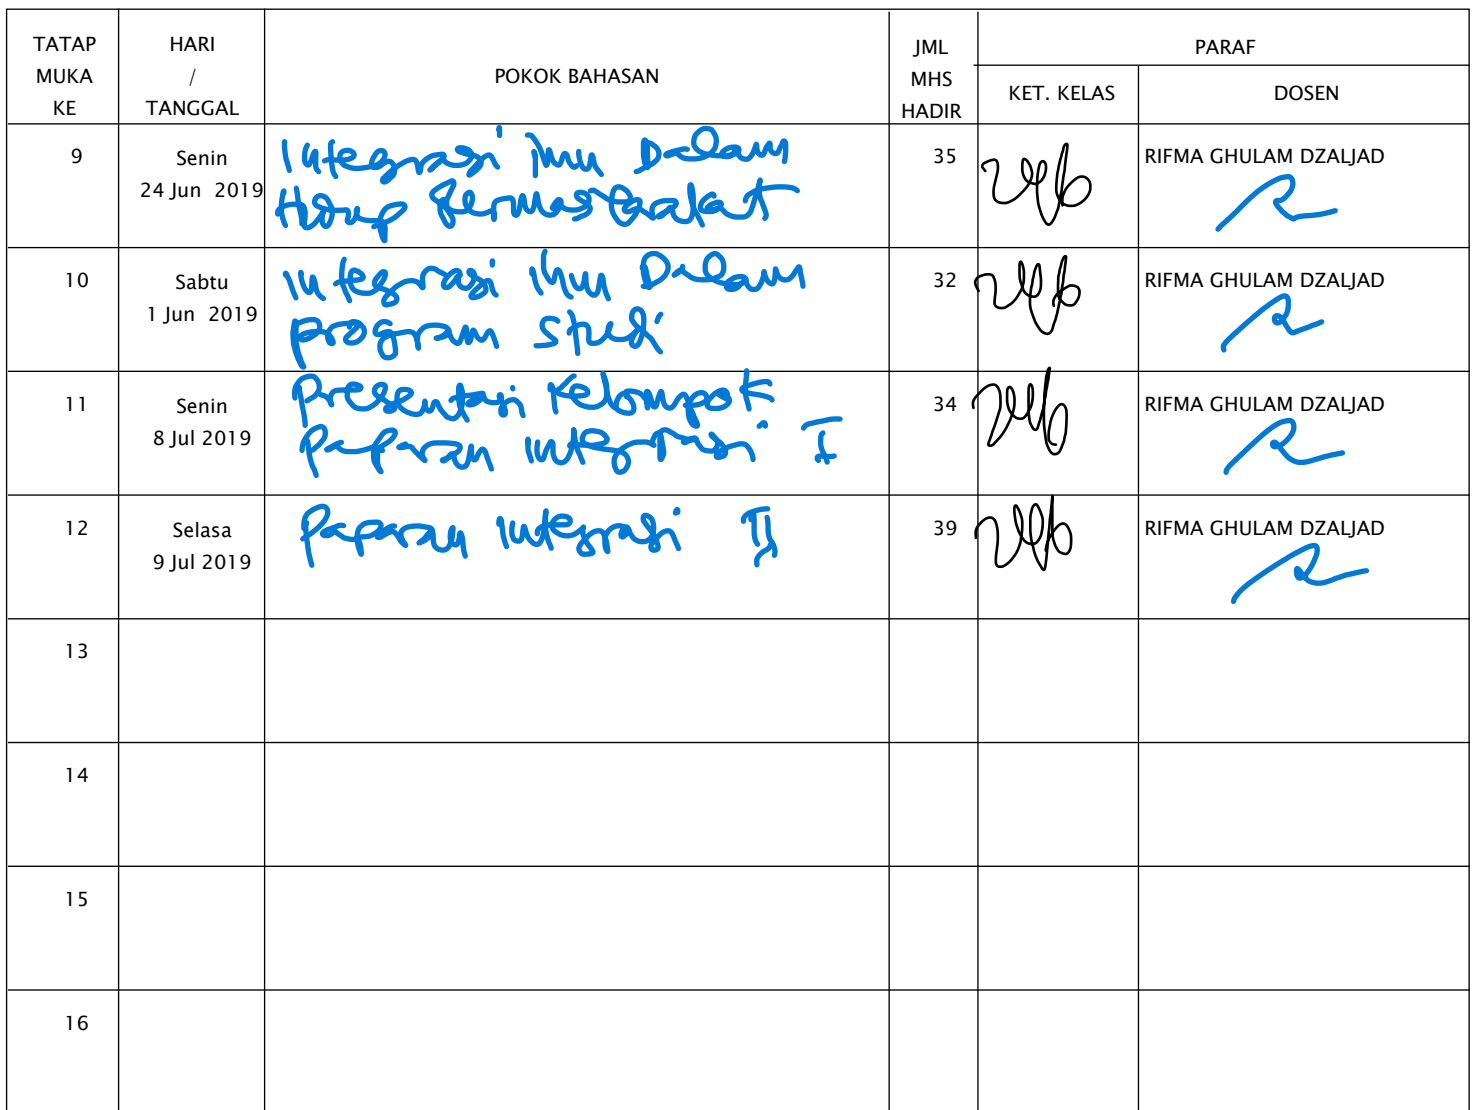 TATAP MUKA KE HARI / TANGGAL POKOK BAHASAN JML MHS HADIR PARAF
KET. KELAS DOSEN
9 Senin 24 Jun 2019 Integrasi ilmu Dalam Hidup Bermasyarakat 35 RIFMA GHULAM DZALJAD
10 Sabtu 1 Jun 2019 Integrasi ilmu Dalam program studi 32 RIFMA GHULAM DZALJAD
11 Senin 8 Jul 2019 Presentasi Kelompok paparan integrasi I 34 RIFMA GHULAM DZALJAD
12 Selasa 9 Jul 2019 Paparan integrasi II 39 RIFMA GHULAM DZALJAD
13
14
15
16